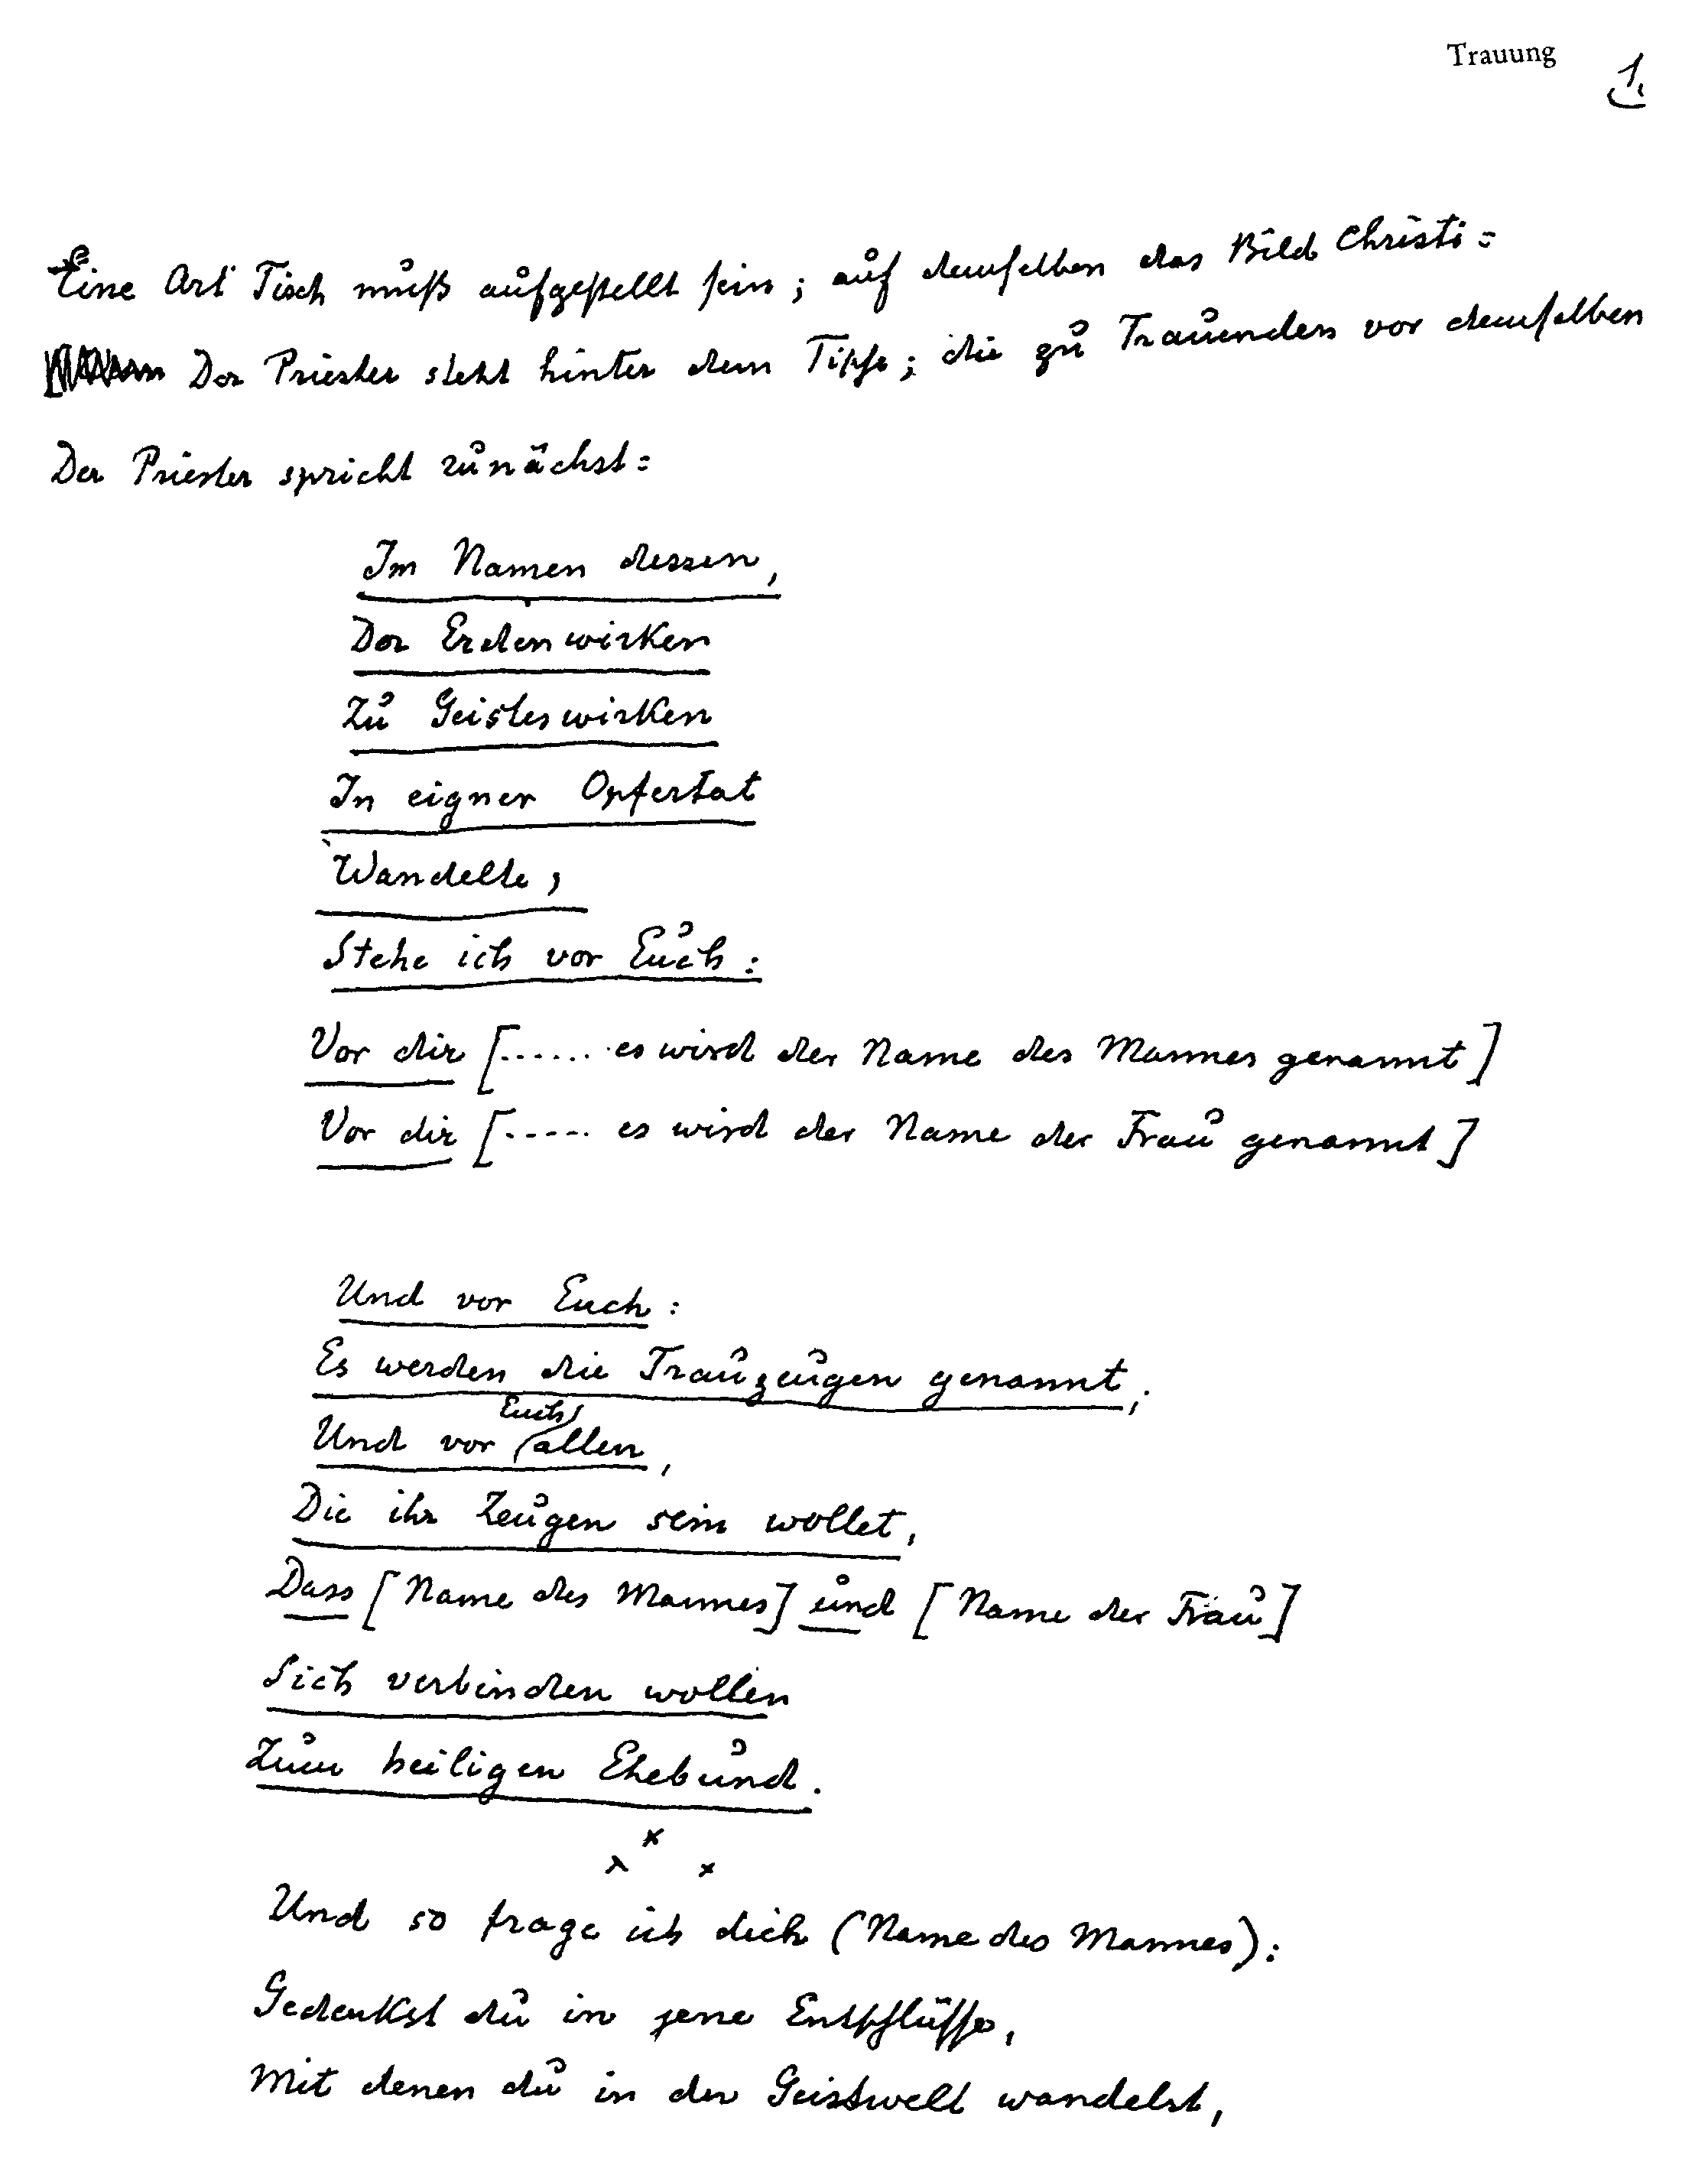 Trauung
1.
Eine Art Tisch muß aufgestellt sein; auf demselben das Bild Christi =
Der Priester steht hinter dem Tische; die zu Trauenden vor demselben
Der Priester spricht zunächst =
Im Namen dessen,
Der Erdenwirken
Zu Geisteswirken
In eigner Opfertat
Wandelte,
Stehe ich vor Euch:
Vor dir [...... es wird der Name des Mannes genannt]
Vor dir [..... es wird der Name der Frau genannt]
Und vor Euch:
Es werden die Trauzeugen genannt;
Und vor Euch allen,
Die ihr Zeugen sein wollet,
Dass [Name des Mannes] und [Name der Frau]
Sich verbinden wollen
Zum heiligen Ehebund.
Und so frage ich dich (Name des Mannes):
Gedenkst du in jene Entschlüsse,
Mit denen du in der Geistwelt wandelst,